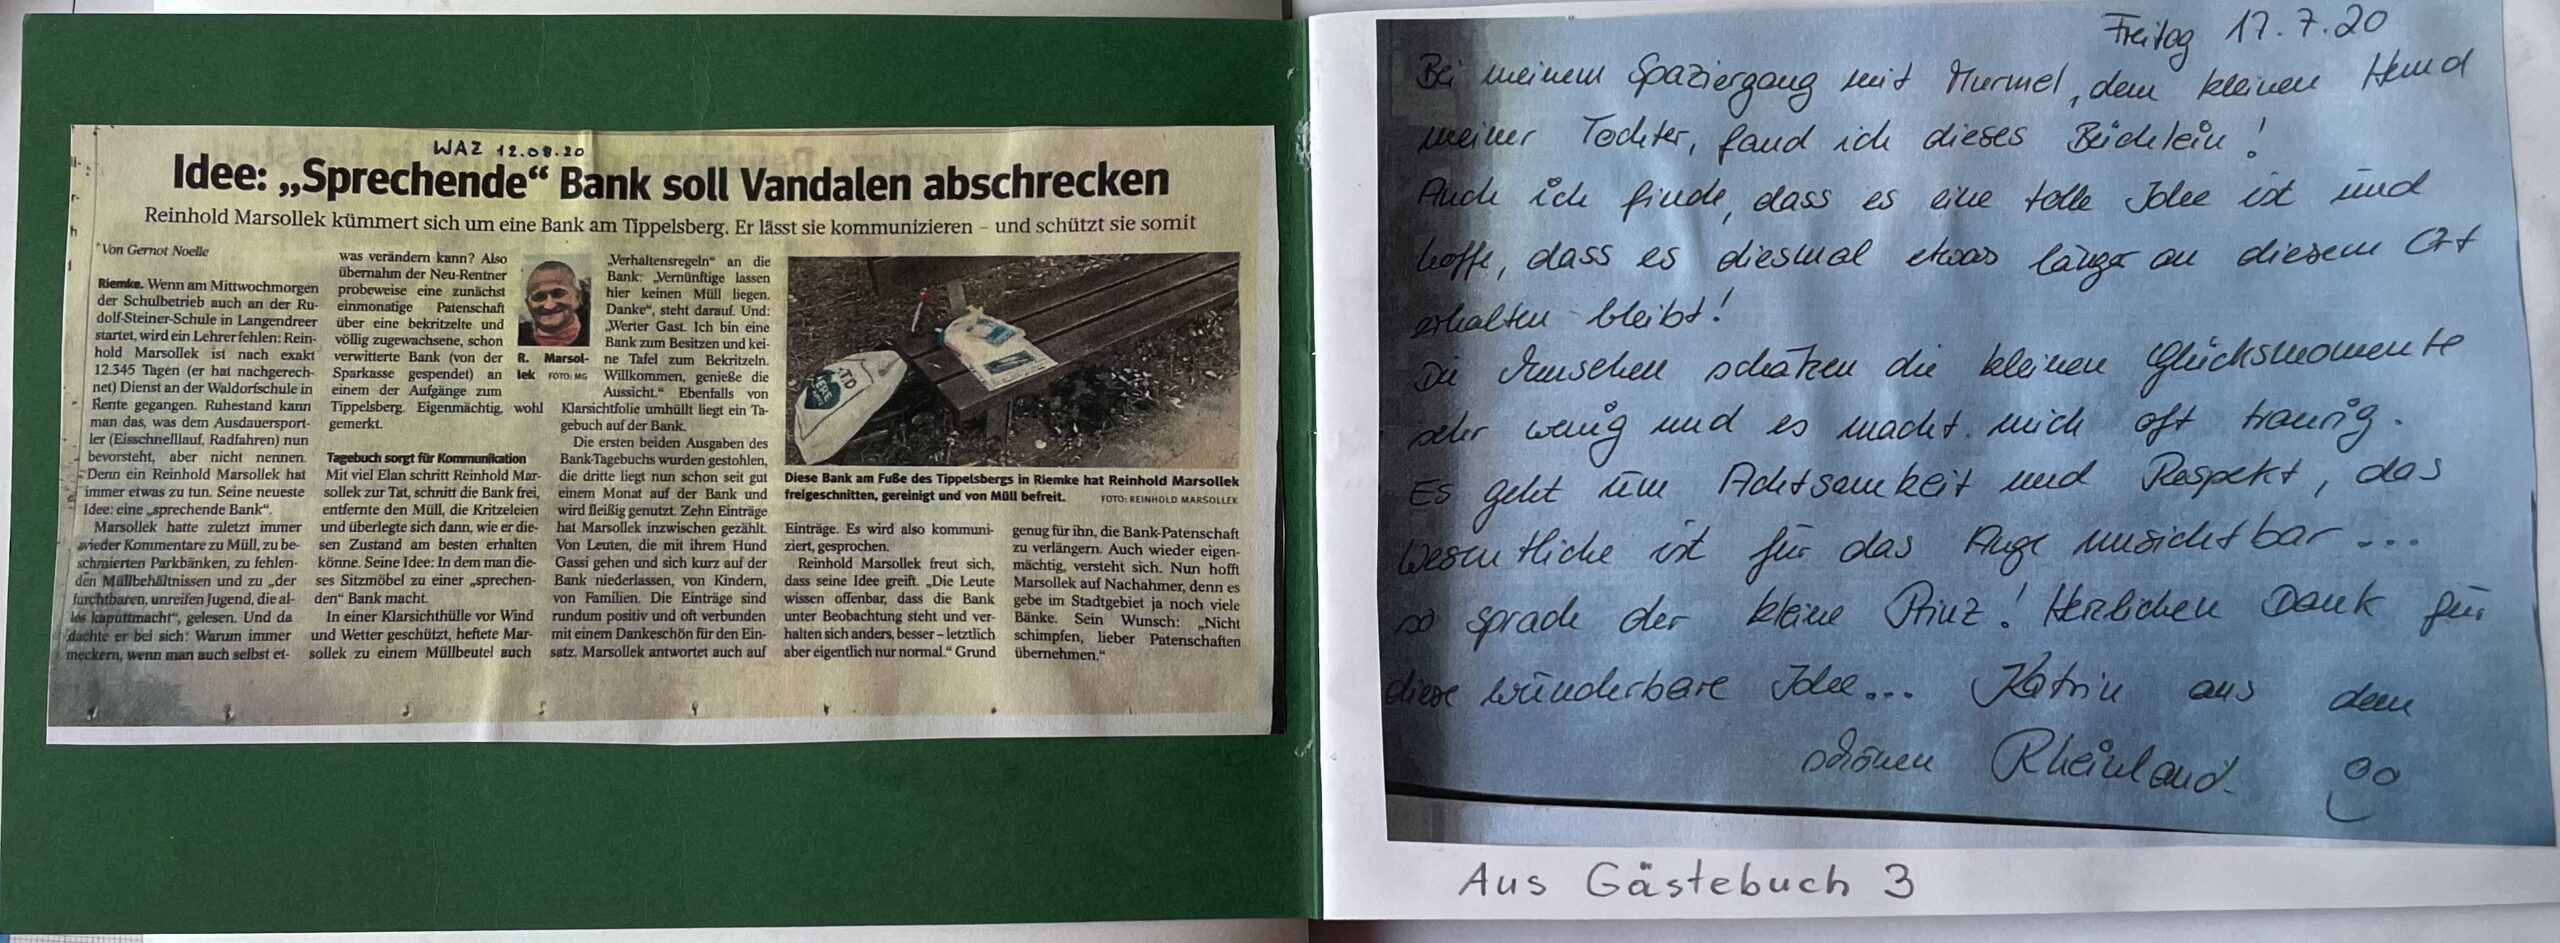 WAZ 12.08.20
Idee: „Sprechende“ Bank soll Vandalen abschrecken
Reinhold Marsollek kümmert sich um eine Bank am Tippelsberg. Er lässt sie kommunizieren – und schützt sie somit
Von Gernot Noelle
Riemke. Wenn am Mittwochmorgen
der Schulbetrieb auch an der Ru-
dolf-Steiner-Schule in Langendreer
startet, wird ein Lehrer fehlen: Rein-
hold Marsollek ist nach exakt
12.345 Tagen (er hat nachgerech-
net) Dienst an der Waldorfschule in
Rente gegangen. Ruhestand kann
man das, was dem Ausdauersport-
ler (Eisschnelllauf, Radfahren) nun
bevorsteht, aber nicht nennen.
Denn ein Reinhold Marsollek hat
immer etwas zu tun. Seine neueste
Idee: eine „sprechende Bank“.
Marsollek hatte zuletzt immer
wieder Kommentare zu Müll, zu be-
schmierten Parkbänken, zu fehlen-
den Müllbehältnissen und zu „der
furchtbaren, unreifen Jugend, die al-
les kaputtmacht“, gelesen. Und da
dachte er bei sich: Warum immer
meckern, wenn man auch selbst et-
was verändern kann? Also
übernahm der Neu-Rentner
probeweise eine zunächst
einmonatige Patenschaft
über eine bekritzelte und
völlig zugewachsene, schon
verwitterte Bank (von der
Sparkasse gespendet) an
einem der Aufgänge zum
Tippelsberg. Eigenmächtig, wohl
gemerkt.
Tagebuch sorgt für Kommunikation
Mit viel Elan schritt Reinhold Mar-
sollek zur Tat, schnitt die Bank frei,
entfernte den Müll, die Kritzeleien
und überlegte sich dann, wie er die-
sen Zustand am besten erhalten
könne. Seine Idee: In dem man die-
ses Sitzmöbel zu einer „sprechen-
den“ Bank macht.
In einer Klarsichthülle vor Wind
und Wetter geschützt, heftete Mar-
sollek zu einem Müllbeutel auch
R. Marsol-
lek FOTO: MG
„Verhaltensregeln“ an die
Bank: „Vernünftige lassen
hier keinen Müll liegen.
Danke“, steht darauf. Und:
„Werter Gast. Ich bin eine
Bank zum Besitzen und kei-
ne Tafel zum Bekritzeln.
Willkommen, genieße die
Aussicht.“ Ebenfalls von
Klarsichtfolie umhüllt liegt ein Ta-
gebuch auf der Bank.
Die ersten beiden Ausgaben des
Bank-Tagebuchs wurden gestohlen,
die dritte liegt nun schon seit gut
einem Monat auf der Bank und
wird fleißig genutzt. Zehn Einträge
hat Marsollek inzwischen gezählt.
Von Leuten, die mit ihrem Hund
Gassi gehen und sich kurz auf der
Bank niederlassen, von Kindern,
von Familien. Die Einträge sind
rundum positiv und oft verbunden
mit einem Dankeschön für den Ein-
satz. Marsollek antwortet auch auf
Diese Bank am Fuße des Tippelsbergs in Riemke hat Reinhold Marsollek
freigeschnitten, gereinigt und von Müll befreit. FOTO: REINHOLD MARSOLLEK
Einträge. Es wird also kommuni-
ziert, gesprochen.
Reinhold Marsollek freut sich,
dass seine Idee greift. „Die Leute
wissen offenbar, dass die Bank
unter Beobachtung steht und ver-
halten sich anders, besser – letztlich
aber eigentlich nur normal.“ Grund
genug für ihn, die Bank-Patenschaft
zu verlängern. Auch wieder eigen-
mächtig, versteht sich. Nun hofft
Marsollek auf Nachahmer, denn es
gebe im Stadtgebiet ja noch viele
Bänke. Sein Wunsch: „Nicht
schimpfen, lieber Patenschaften
übernehmen.“
Freitag 17.7.20
Bei meinem Spaziergang mit Murmel, dem kleinen Hund
meiner Tochter, fand ich dieses Büchlein!
Auch ich finde, dass es eine tolle Idee ist und
hoffe, dass es diesmal etwas länger an diesem Ort
erhalten bleibt!
Die Menschen schätzen die kleinen Glücksmomente
sehr wenig und es macht mich oft traurig.
Es geht um Achtsamkeit und Respekt, das
Wesentliche ist für das Auge unsichtbar...
so sprach der kleine Prinz! Herzlichen Dank für
diese wunderbare Idee... Katrin aus dem
schönen Rheinland.
Aus Gästebuch 3